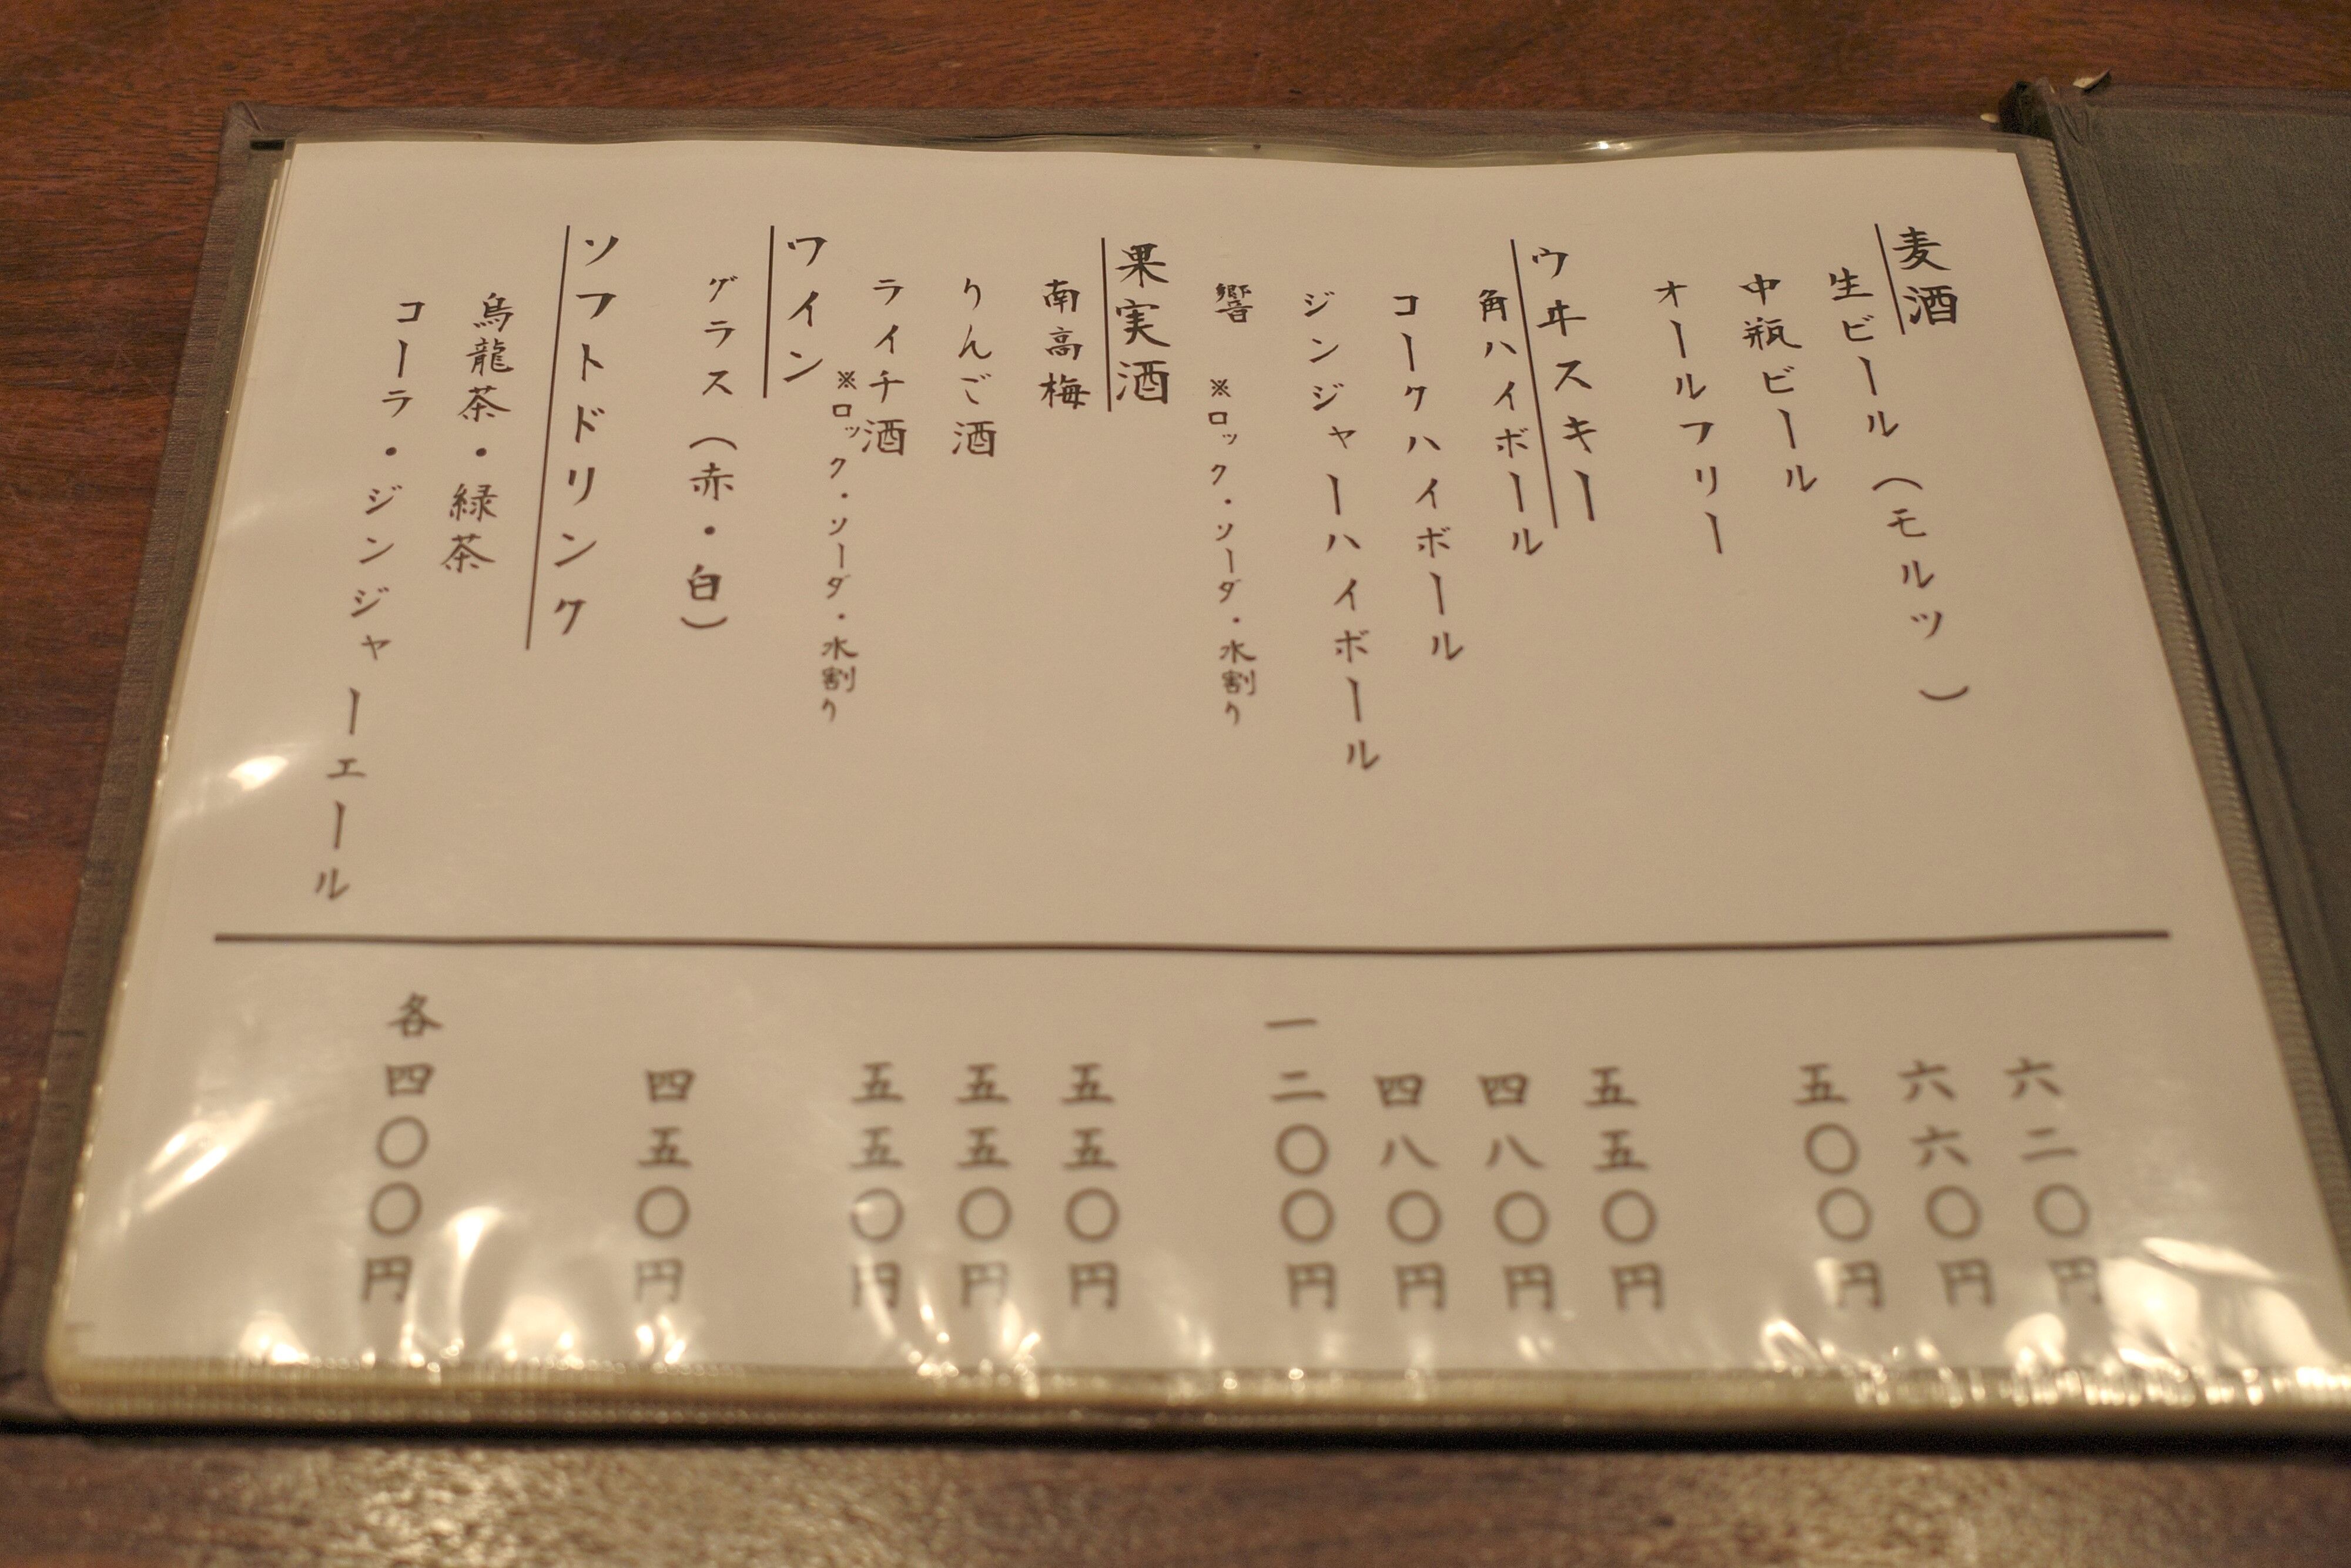 麦酒
生ビール（モルツ）
六二〇円
中瓶ビール
六六〇円
オールフリー
五〇〇円
ウヰスキー
角ハイボール
五五〇円
コークハイボール
四八〇円
ジンジャーハイボール
四八〇円
響
一二〇〇円
※ロック・ソーダ・水割り
果実酒
南高梅
五五〇円
りんご酒
五五〇円
ライチ酒
五五〇円
※ロック・ソーダ・水割り
ワイン
グラス（赤・白）
四五〇円
ソフトドリンク
烏龍茶・緑茶
コーラ・ジンジャーエール
各四〇〇円